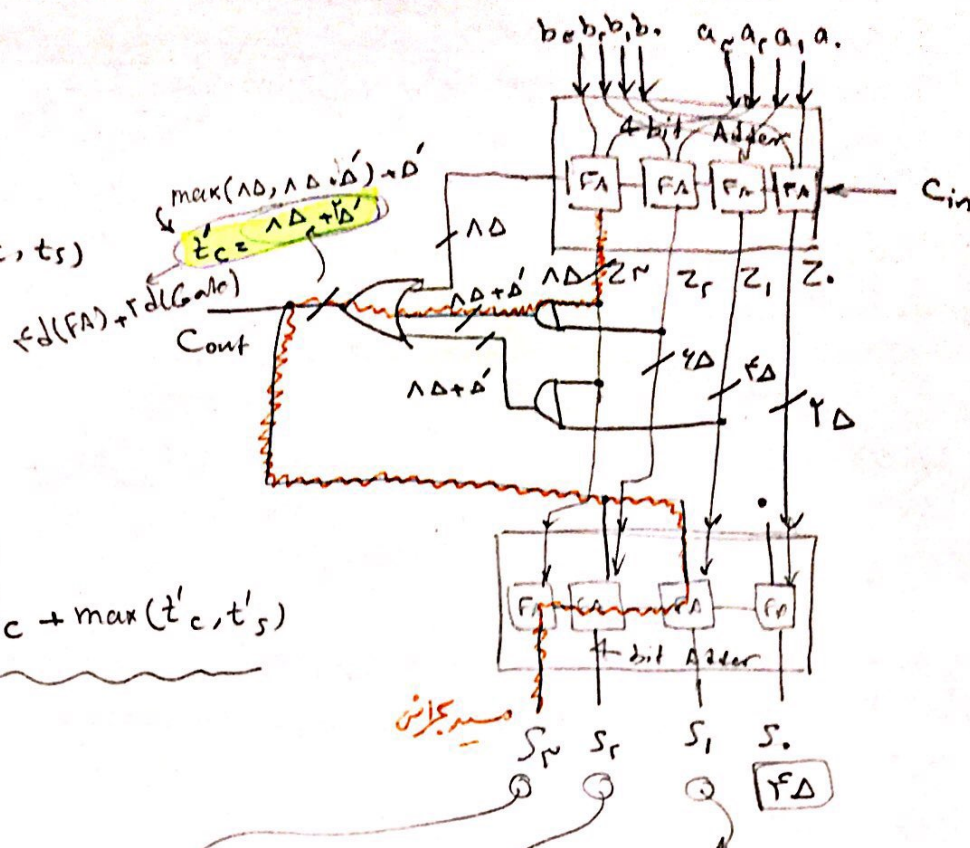 b₃ b₂ b₁ b₀ a₃ a₂ a₁ a₀
4 bit Adder
FA FA FA FA
Cin
max(۸Δ, ۸Δ+Δ') + Δ'
t'c = ۸Δ + ۲Δ'
, ts)
۴d(FA) + ۲d(Gate)
Cout
۸Δ
۸Δ Z۳ Z۲ Z۱ Z۰
۸Δ+Δ'
۸Δ+Δ'
۶Δ ۴Δ ۲Δ
۰
c + max(t'c, t's)
FA FA FA FA
4 bit Adder
مسیر بحرانی
S۳ S۲ S۱ S۰
۴Δ